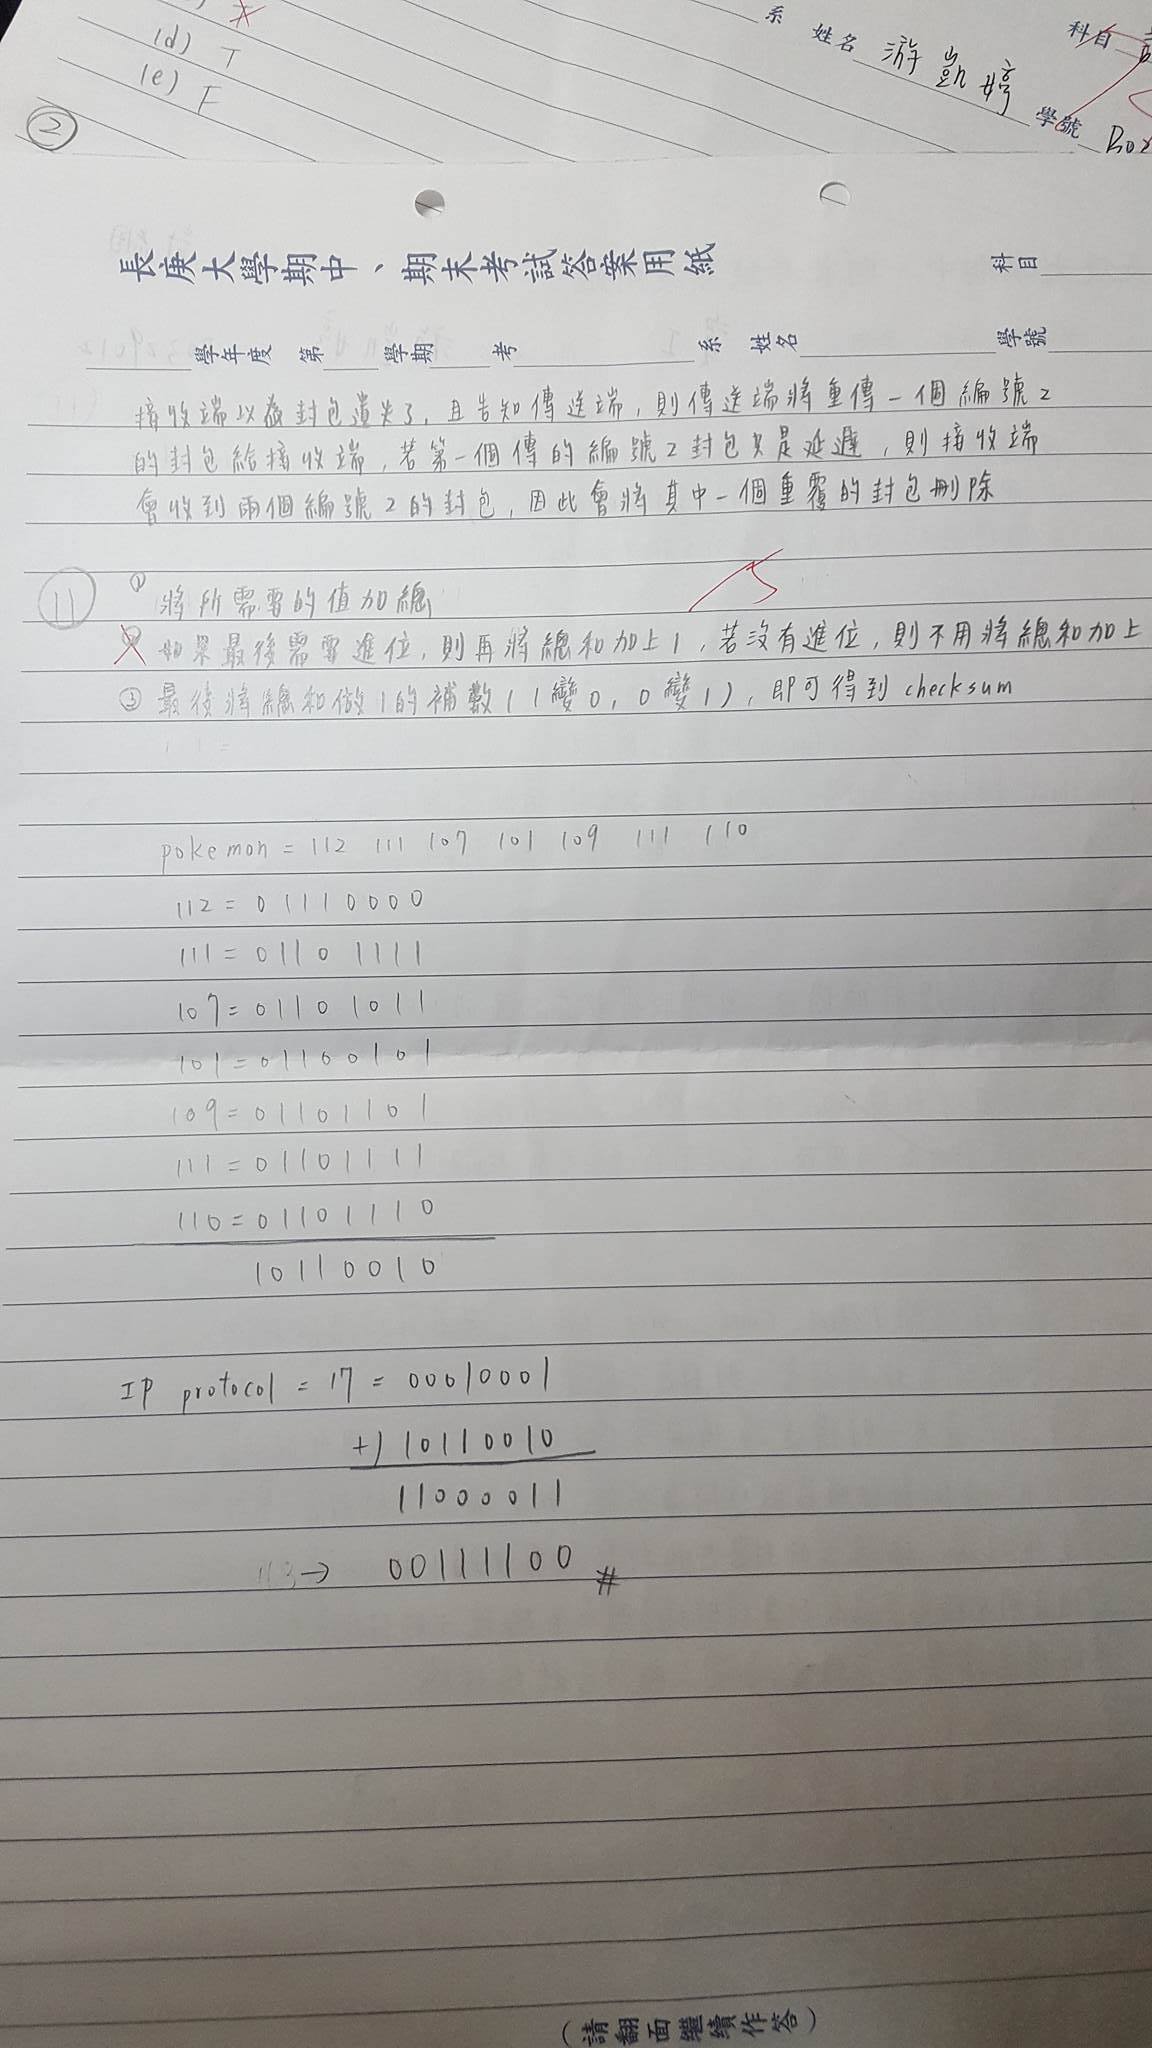 (d) T
(e) F
②
系 姓名 游凱婷 學號
科目
長庚大學期中、期末考試答案用紙
科目
學年度 第 學期 考 系 姓名 學號
接收端以為封包遺失了，且告知傳送端，則傳送端將重傳一個編號2
的封包給接收端，若第一個傳的編號2封包只是延遲，則接收端
會收到兩個編號2的封包，因此會將其中一個重覆的封包刪除
⑪ ① 將所需要的值加總
② 如果最後需要進位，則再將總和加上1，若沒有進位，則不用將總和加上
③ 最後將總和做1的補數(1變0，0變1)，即可得到checksum
pokemon = 112 111 107 101 109 111 110
112 = 01110000
111 = 01101111
107 = 01101011
101 = 01100101
109 = 01101101
111 = 01101111
110 = 01101110
10110010
IP protocol = 17 = 00010001
+) 10110010
11000011
→ 00111100 #
(請翻面繼續作答)